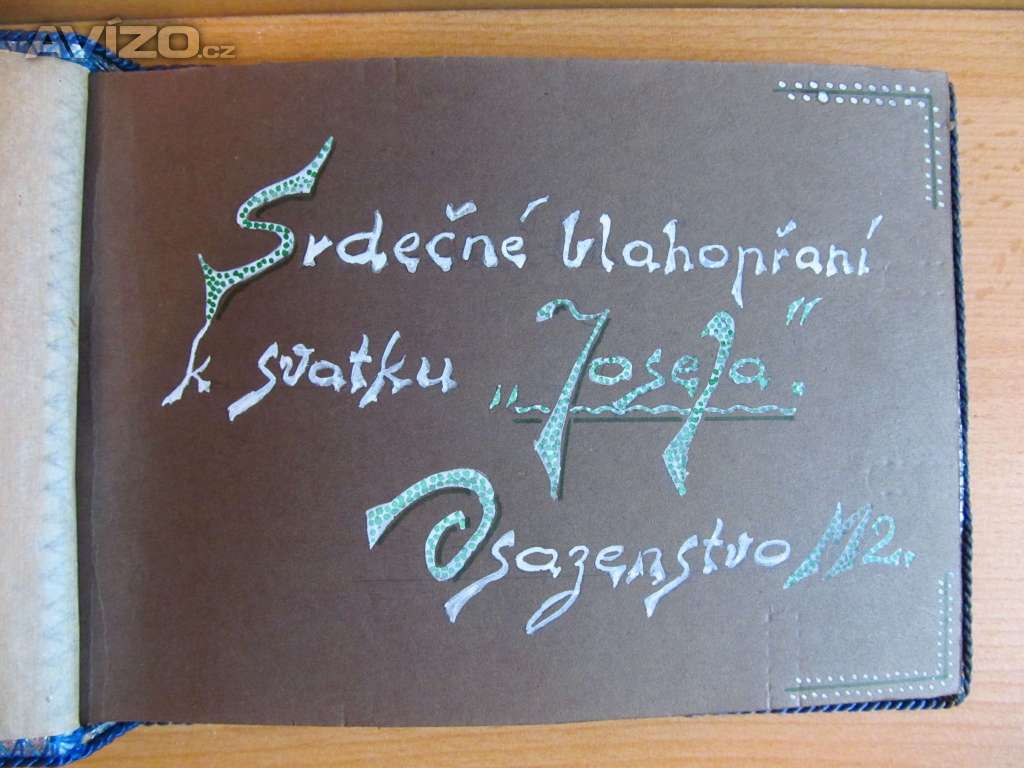 AVÍZO.cz
Srdečné blahopřaní
k svatku „Josefa."
Osazenstvo M2.